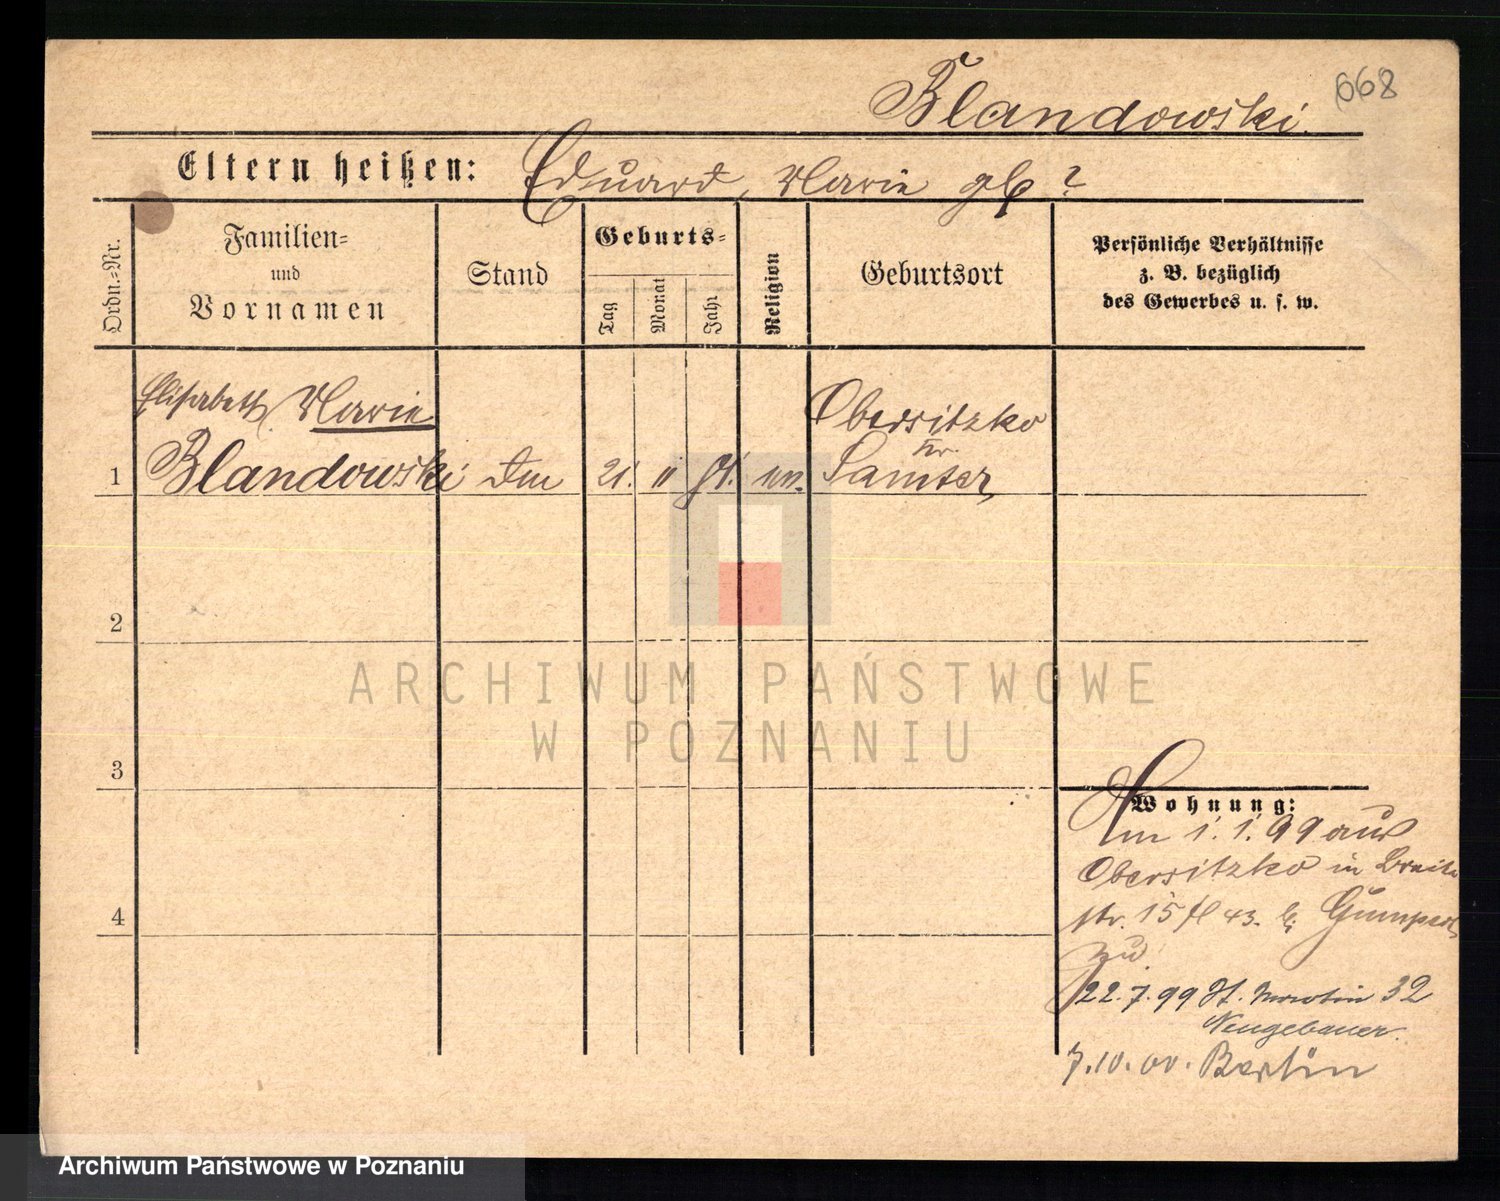 668
Blandowski.
Eltern heißen: Eduard, Marie
Ordn.-Nr.
Familien-
und
Vornamen
Stand
Geburts-
Tag
Monat
Jahr
Religion
Geburtsort
Persönliche Verhältnisse
z. B. bezüglich
des Gewerbes u. s. w.
Elisabeth Marie
Blandowski
Obersitzko
Kr.
1
21. 11
Samter
2
3
4
ARCHIWUM PAŃSTWOWE
W POZNANIU
Wohnung:
Am 1. 1. 99 aus
Obersitzko in Breite
str. 15
zu
22.7.99 St. Martin 32
Neugebauer.
7.10.00. Berlin
Archiwum Państwowe w Poznaniu